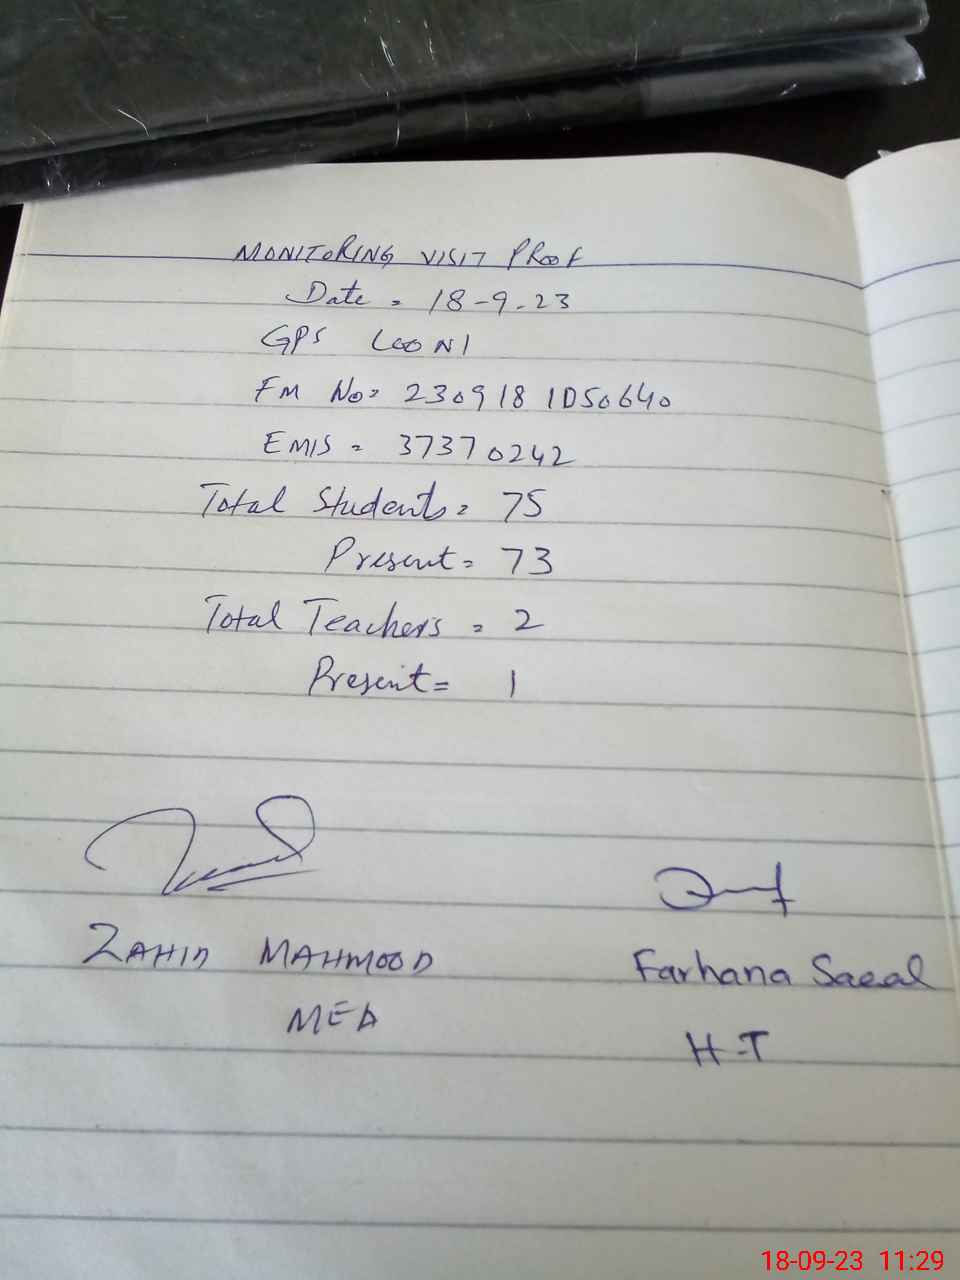 MONITORING VISIT PROOF
Date = 18-9-23
GPS LOONI
FM No= 230918 1D50640
EMIS = 37370242
Total Students = 75
Present = 73
Total Teachers = 2
Present = 1
ZAHID MAHMOOD
MEA
Farhana Saeed
H-T
18-09-23 11:29